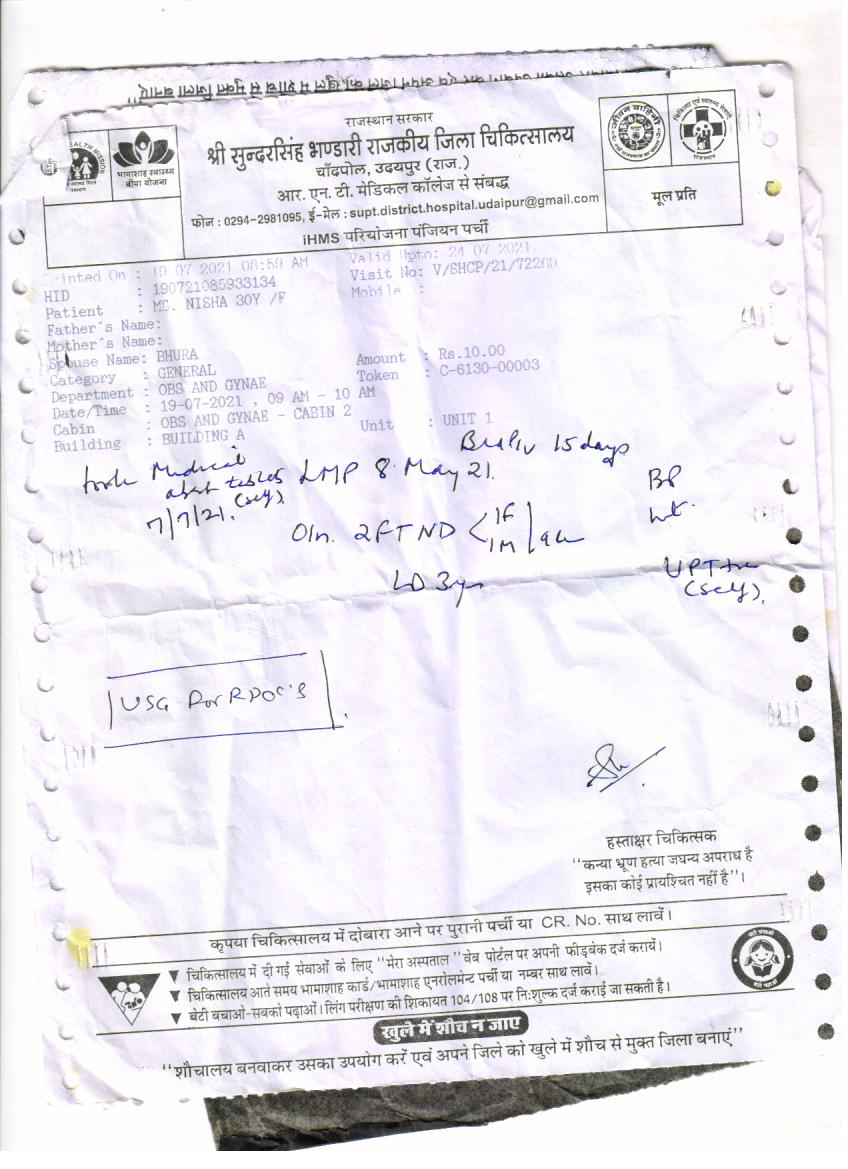 राजस्थान सरकार
श्री सुन्दरसिंह भण्डारी राजकीय जिला चिकित्सालय
चाँदपोल, उदयपुर (राज.)
आर. एन. टी. मेडिकल कॉलेज से संबद्ध
फोन : 0294-2981095, ई-मेल : supt.district.hospital.udaipur@gmail.com
iHMS परियोजना पंजियन पर्ची
भामाशाह स्वास्थ्य
बीमा योजना
मूल प्रति
Printed On : 19 07 2021 08:59 AM Valid Upto: 24 07 2021
HID : 190721085933134 Visit No: V/SHCP/21/72269
Patient : MS. NISHA 30Y /F Mobile :
Father's Name:
Mother's Name:
Spouse Name: BHURA
Category : GENERAL Amount : Rs.10.00
Department : OBS AND GYNAE Token : C-6130-00003
Date/Time : 19-07-2021 , 09 AM - 10 AM
Cabin : OBS AND GYNAE - CABIN 2 Unit : UNIT 1
Building : BUILDING A
15 days
took Medical LMP 8 May 21.
(self)
7/7/21.
BP
wt.
2FTND < 1F 1M
LD 3yr
UPT +ve
(self).
USG for RPOC'S
हस्ताक्षर चिकित्सक
"कन्या भ्रूण हत्या जघन्य अपराध है
इसका कोई प्रायश्चित नहीं है"।
कृपया चिकित्सालय में दोबारा आने पर पुरानी पर्ची या CR. No. साथ लावें।
▼ चिकित्सालय में दी गई सेवाओं के लिए "मेरा अस्पताल" वेब पोर्टल पर अपनी फीडबेक दर्ज करायें।
▼ चिकित्सालय आते समय भामाशाह कार्ड/भामाशाह एनरोलमेन्ट पर्ची या नम्बर साथ लावें।
▼ बेटी बचाओं-सबको पढ़ाओं। लिंग परीक्षण की शिकायत 104/108 पर नि:शुल्क दर्ज कराई जा सकती है।
खुले में शौच न जाए
"शौचालय बनवाकर उसका उपयोग करें एवं अपने जिले को खुले में शौच से मुक्त जिला बनाएं"